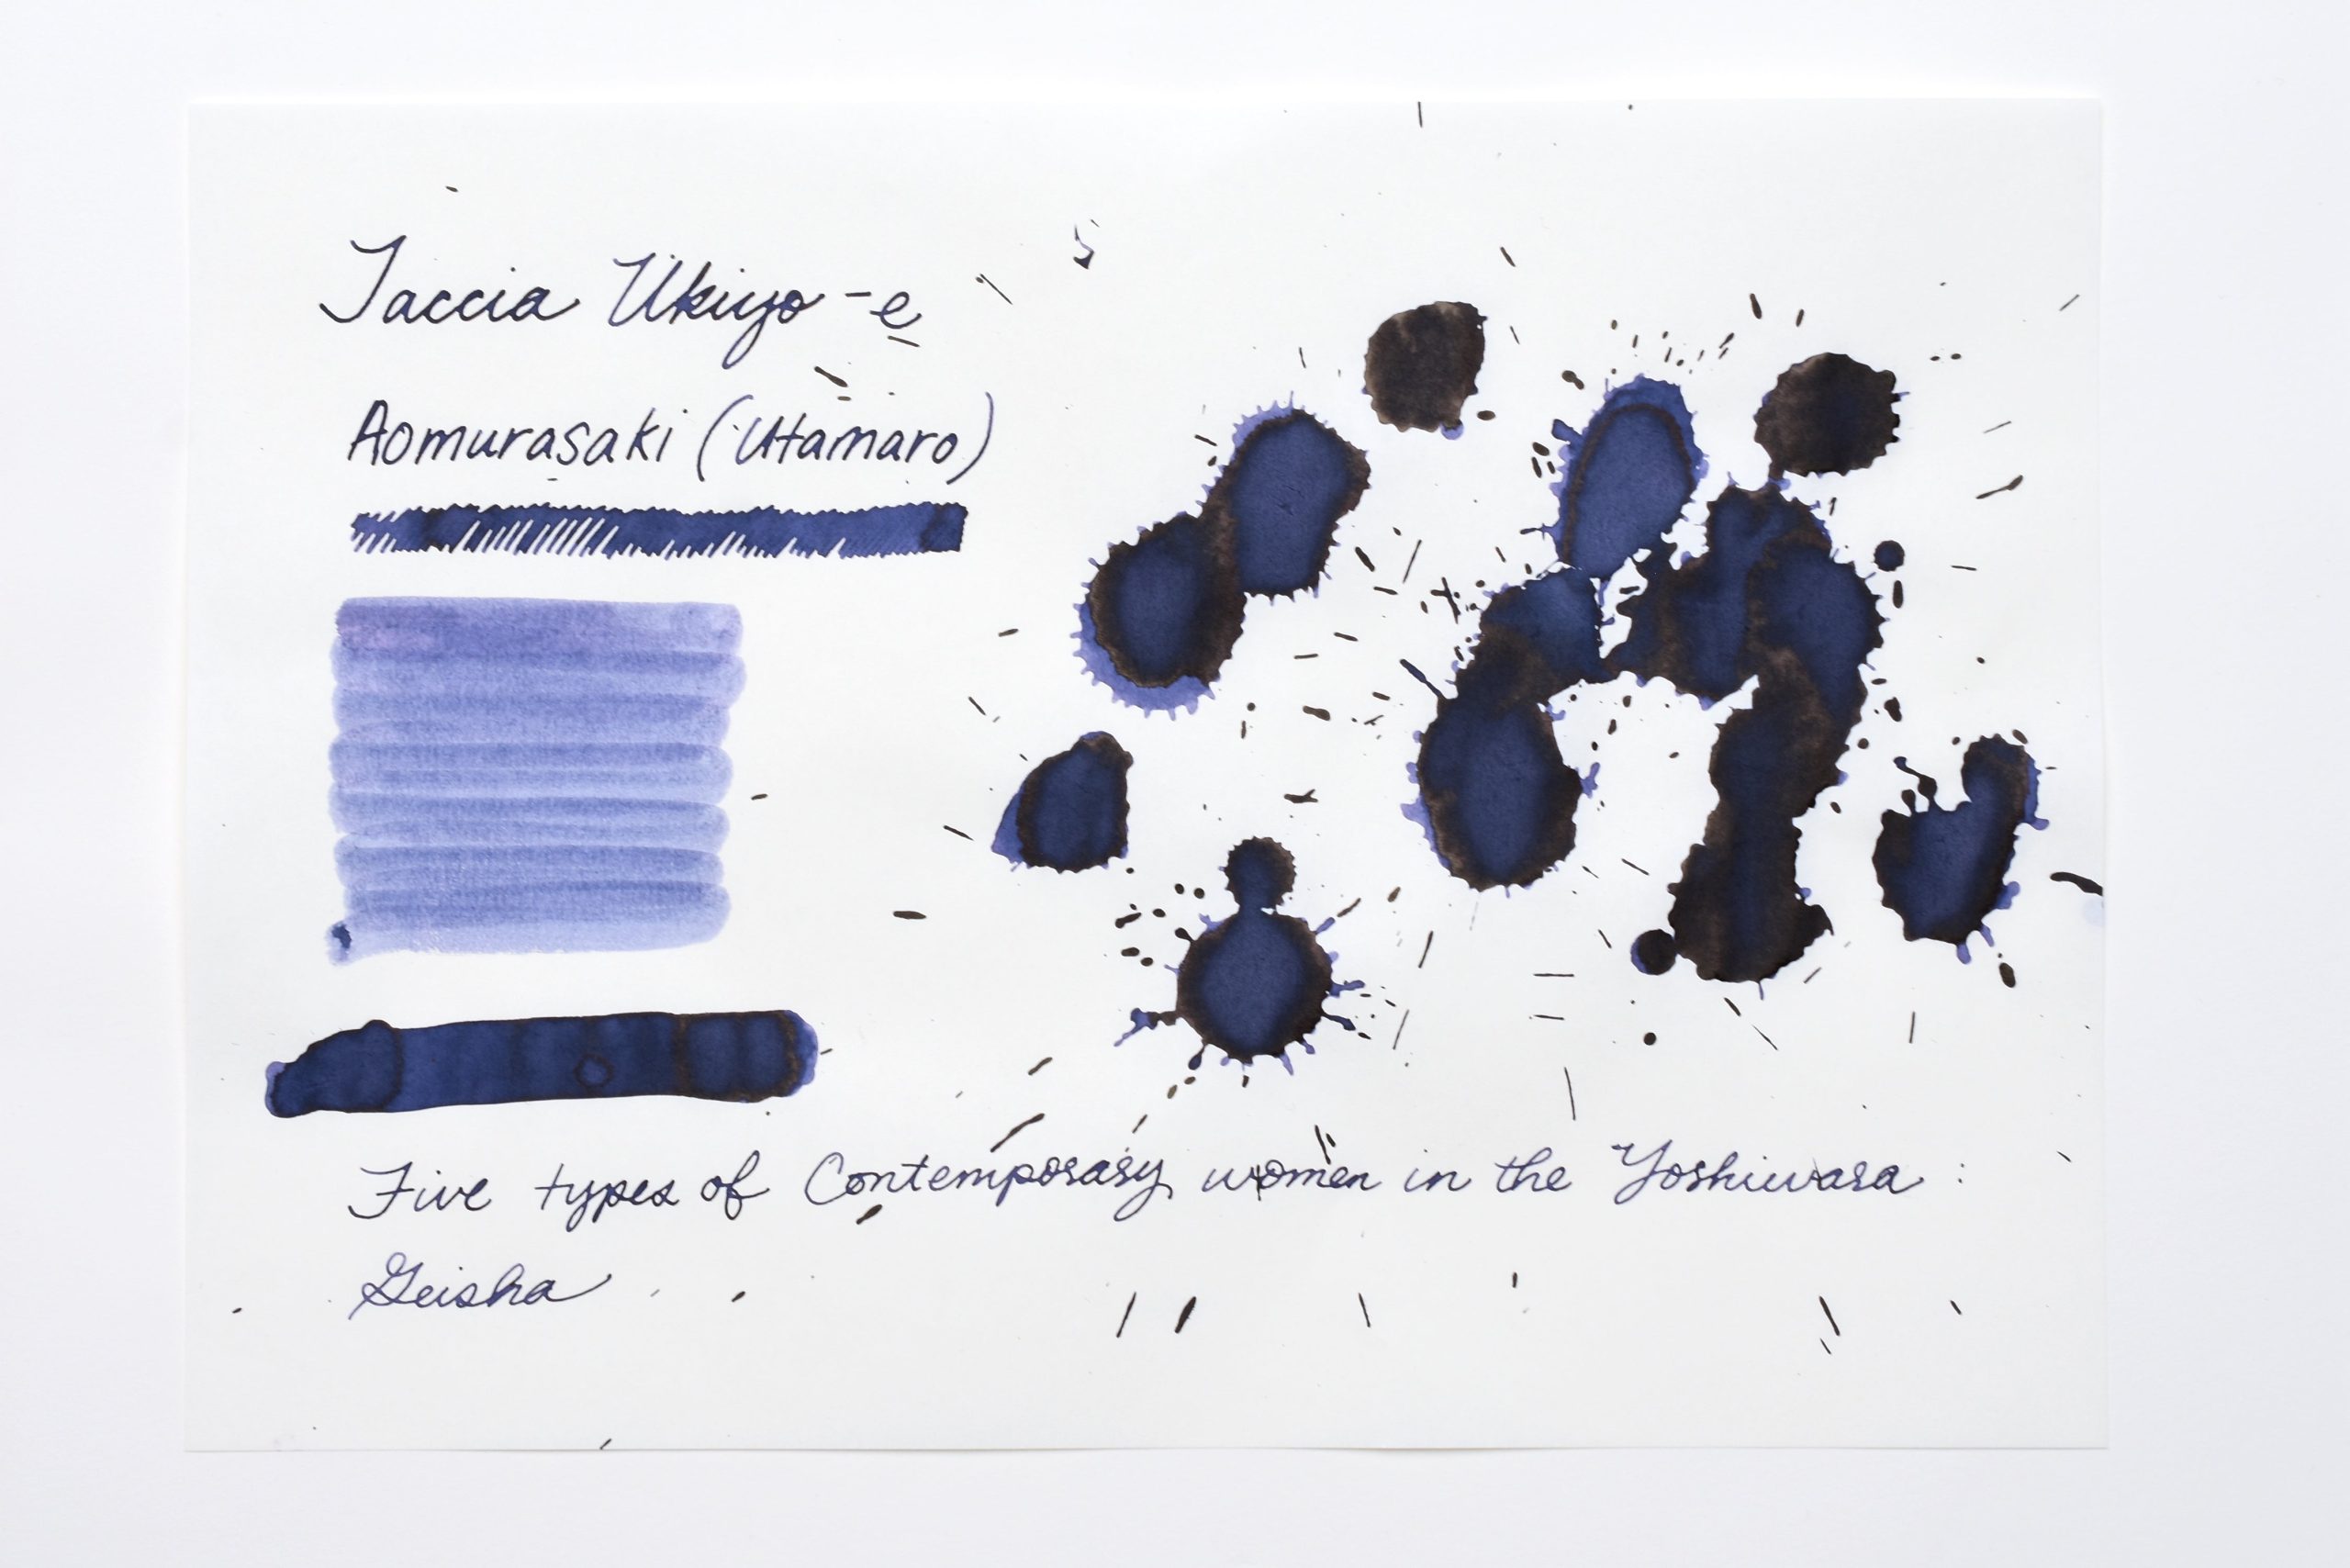 Taccia Ukiyo-e
Aomurasaki (Utamaro)
Five types of Contemporary women in the Yoshiwara :
Geisha